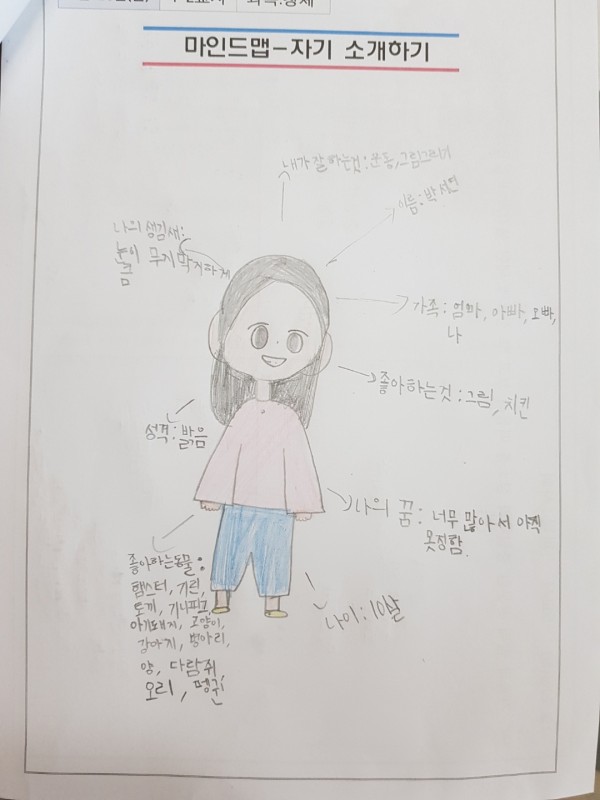 마인드맵-자기 소개하기
내가 잘 하는것: 운동, 그림그리기
이름: 박서연
나의 생김새:
눈이 무지막지하게
큼
가족: 엄마, 아빠, 오빠,
나
좋아하는것: 그림, 치킨
성격: 밝음
나의 꿈: 너무 많아서 아직
못정함.
좋아하는동물:
햄스터, 기린,
토끼, 기니피그,
아기돼지, 고양이,
강아지, 병아리,
양, 다람쥐,
오리, 펭귄
나이: 10살